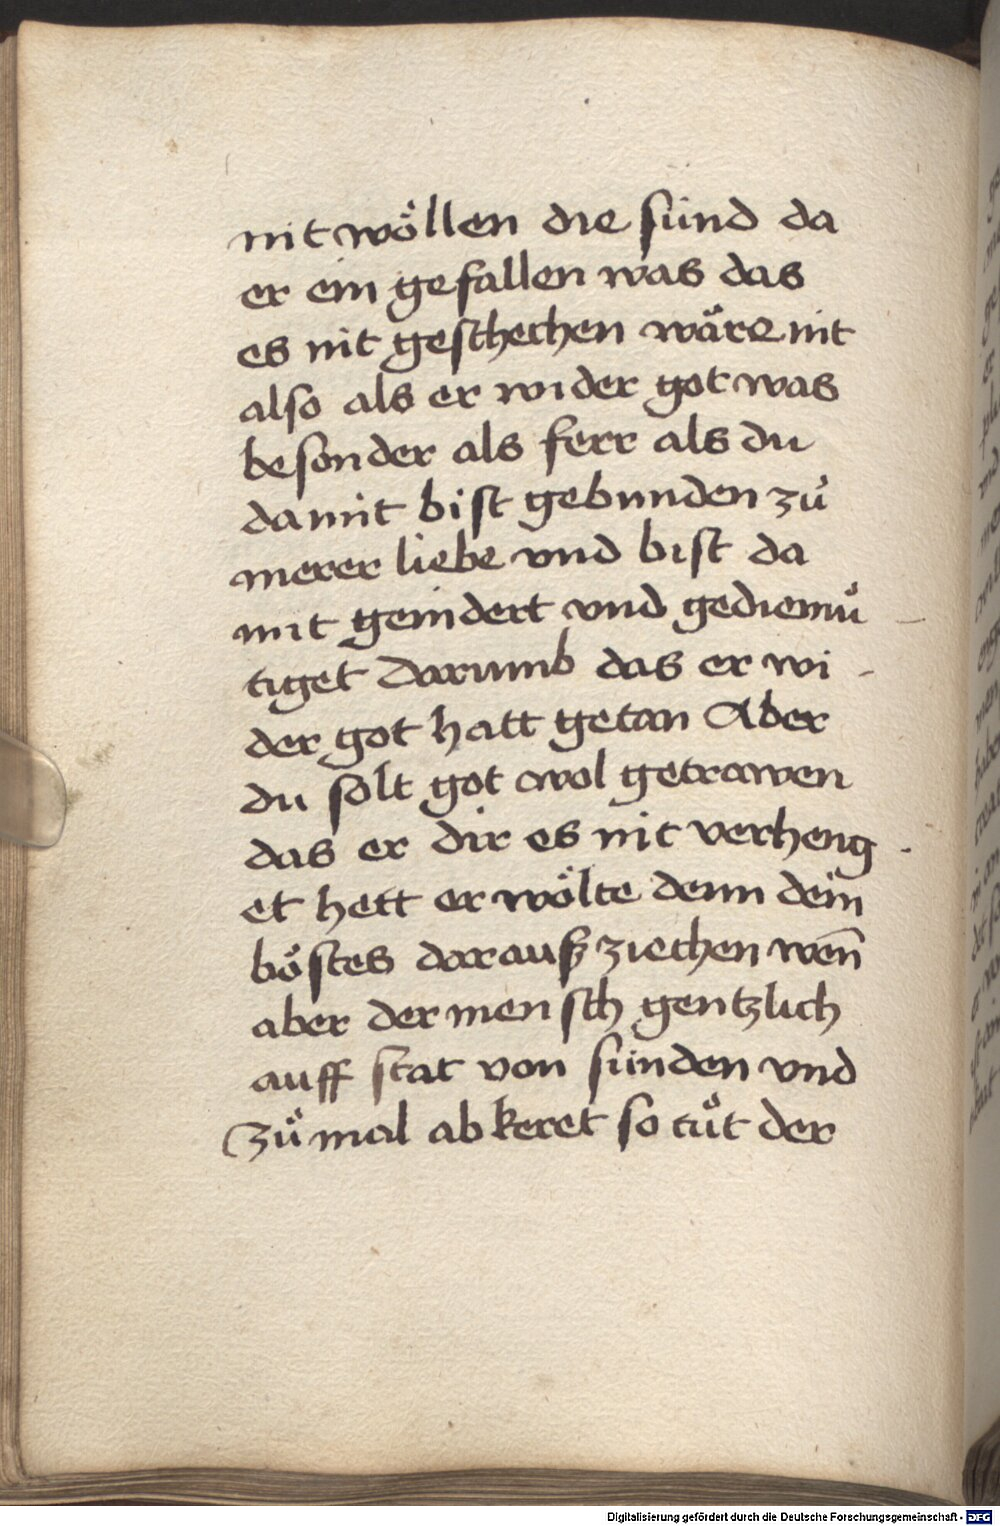 nit wöllen die sünd da
er ein gefallen was das
es nit geschechen wäre nit
also als er wider got was
besonder als ferr als du
damit bist gebunden zů
merer liebe vnd bist da
mit gemdert vnd gediemuͤ
tiget Darumb das er wi
der got hatt getan Aber
du solt got wol getrawen
das er dir es nit verheng
et hett er wölte denn dein
böstes darauß ziechen wen̄
aber der mensch gentzlich
auff stat von sünden vnd
zuͦ mal abkeret so tuͦt der
Digitalisierung gefördert durch die Deutsche Forschungsgemeinschaft - DFG